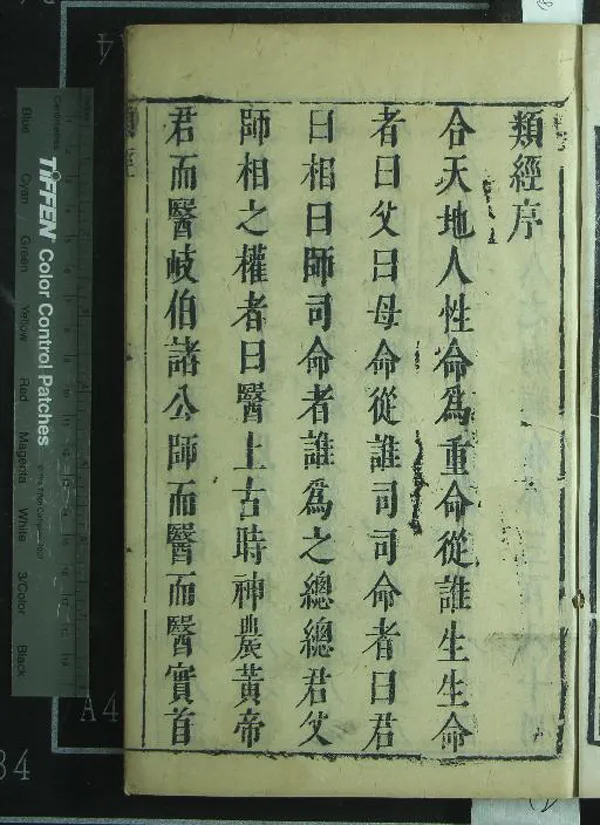 類經序
合天地人性命爲重命從誰生生命
者曰父曰母命從誰司司命者曰君
曰相曰師司命者誰爲之總總君父
師相之權者曰醫上古時神農黃帝
君而醫岐伯諸公師而醫而醫實首
TIFFEN Color Control Patches
Blue Cyan Green Yellow Red Magenta White 3/Color Black
A4
34